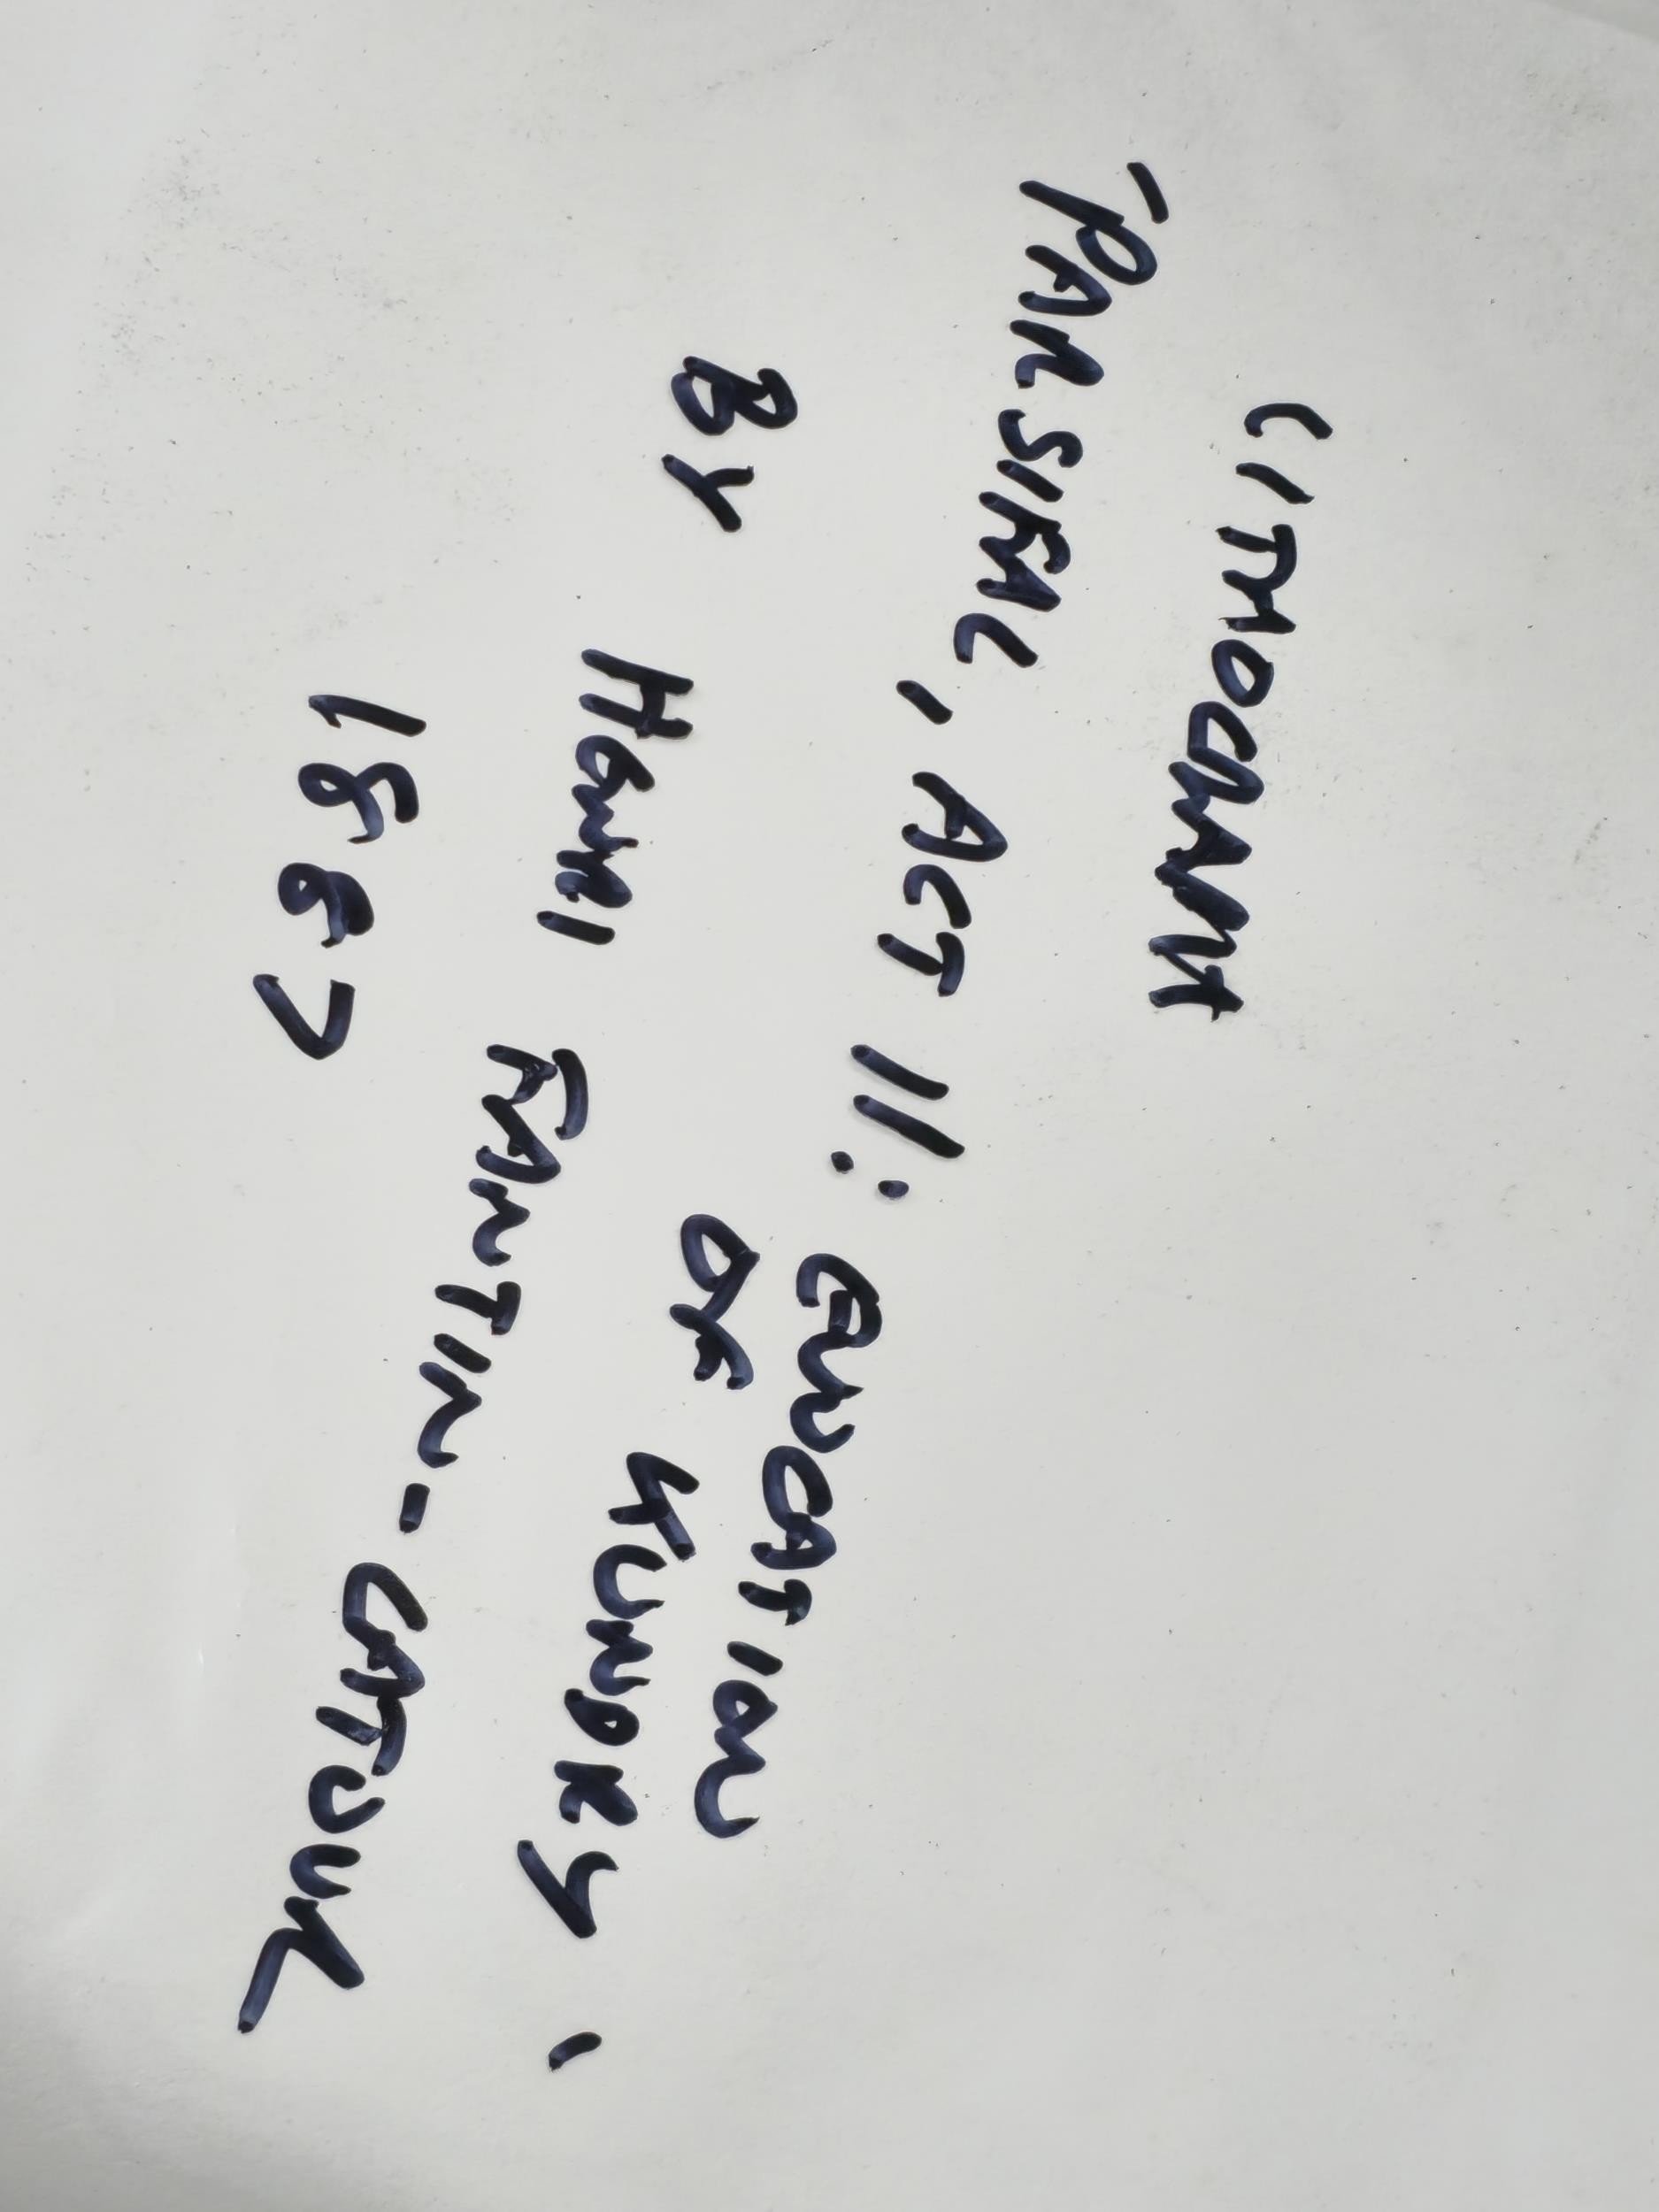 LITHOGRAPH
'PARSIFAL, ACT II: EVOCATION
OF KUNDRY'
BY HENRI FANTIN-LATOUR
1887